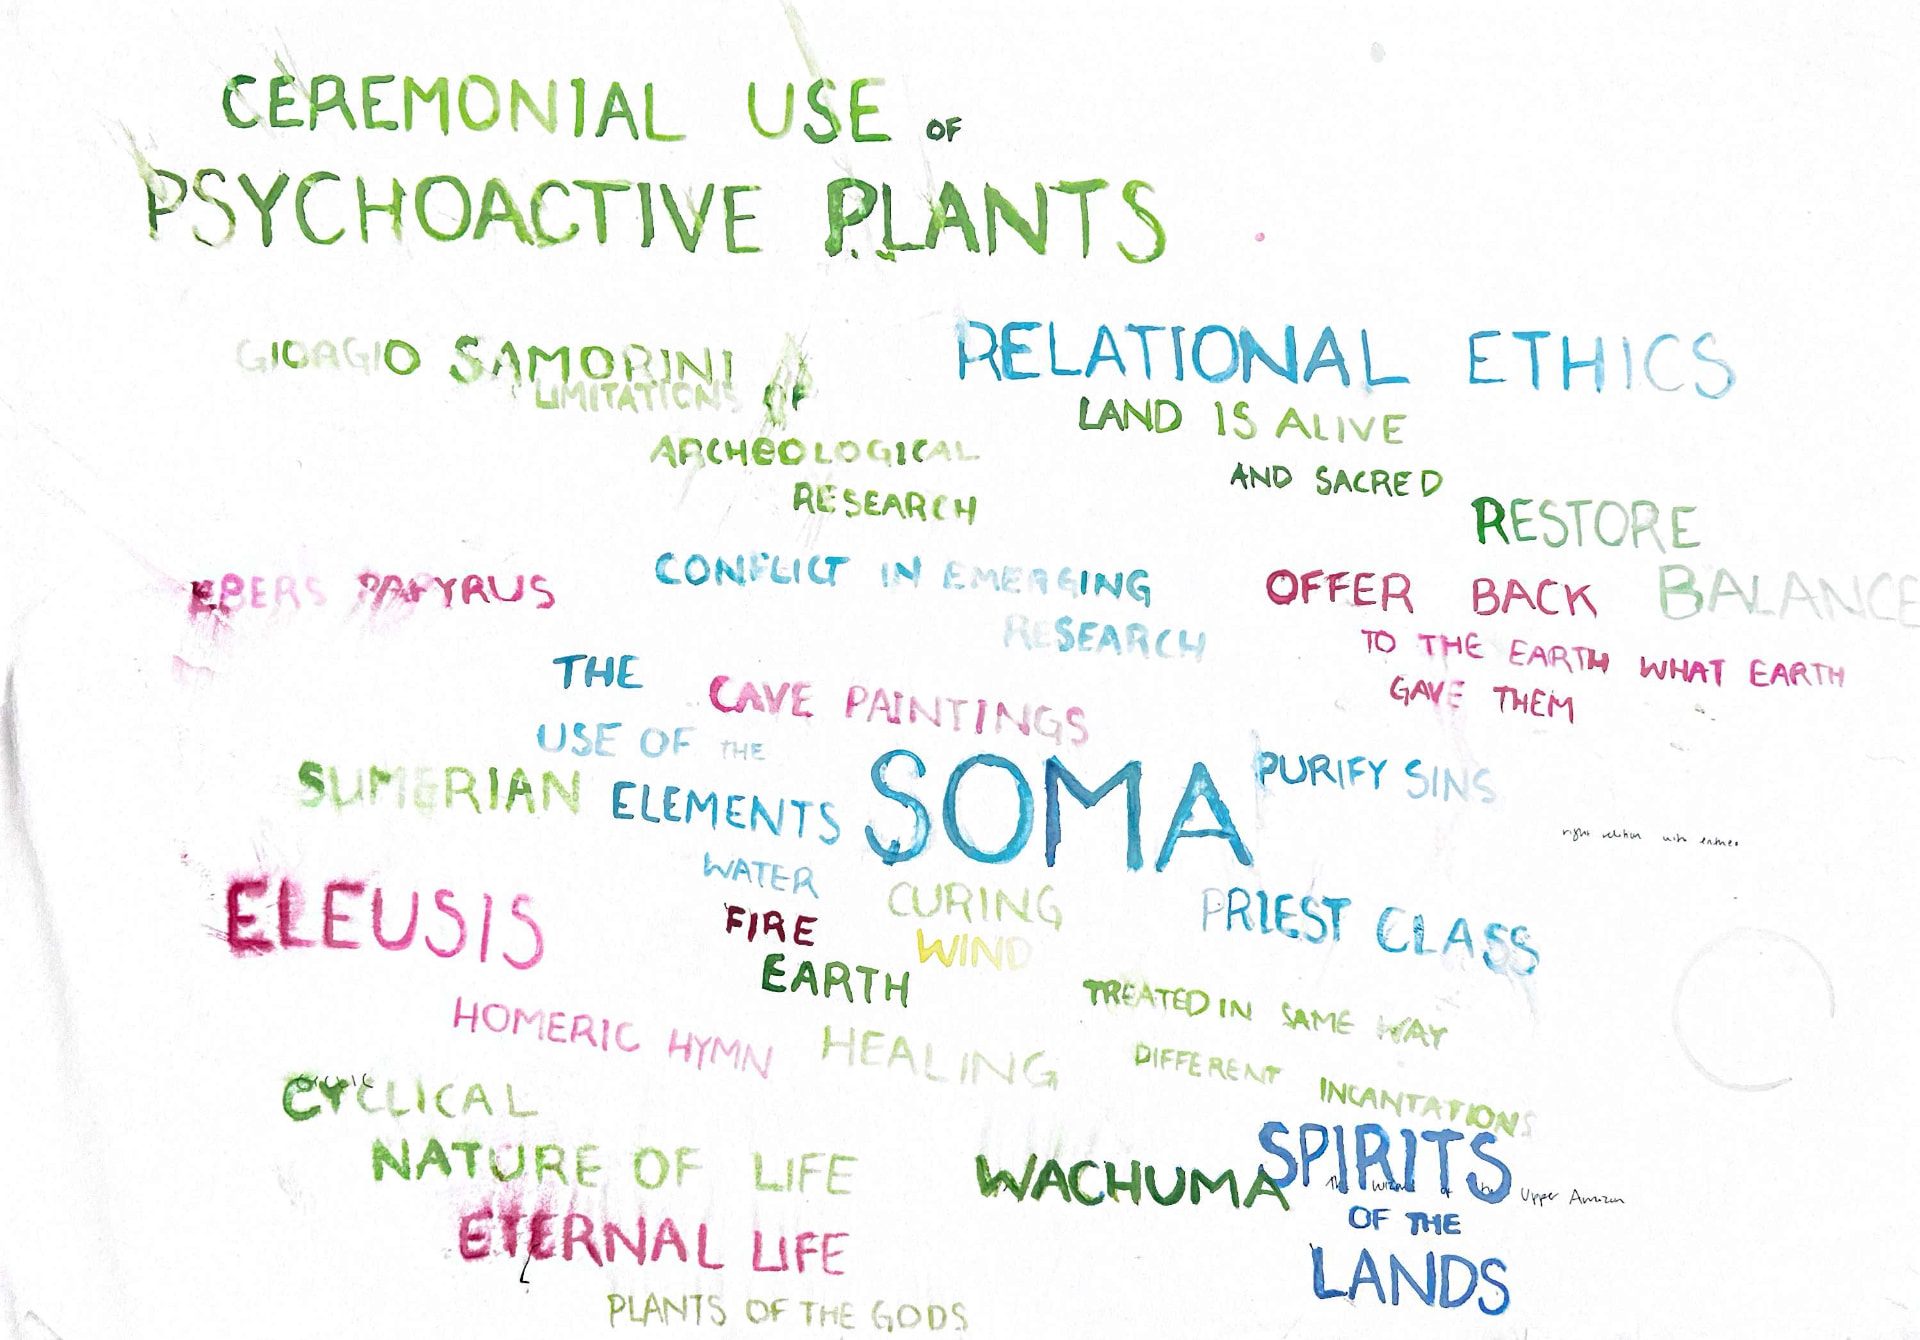 CEREMONIAL USE OF
PSYCHOACTIVE PLANTS
GIORGIO SAMORINI
LIMITATIONS OF
ARCHEOLOGICAL
RESEARCH
RELATIONAL ETHICS
LAND IS ALIVE
AND SACRED
RESTORE
BALANCE
EBERS PAPYRUS
CONFLICT IN EMERGING
RESEARCH
OFFER BACK
TO THE EARTH WHAT EARTH
GAVE THEM
THE
CAVE PAINTINGS
USE OF THE
ELEMENTS
SUMERIAN
SOMA
PURIFY SINS
right relation with
WATER
FIRE
CURING
WIND
EARTH
ELEUSIS
PRIEST CLASS
HOMERIC HYMN
HEALING
TREATED IN SAME WAY
DIFFERENT INCANTATIONS
CYCLICAL
NATURE OF LIFE
WACHUMA
SPIRITS
The wizard of the Upper Amazon
OF THE
LANDS
ETERNAL LIFE
PLANTS OF THE GODS